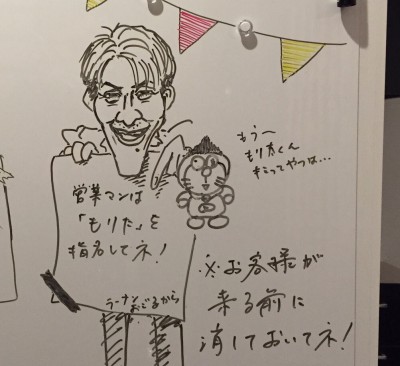 もう〜
もり方くん
キミってやつは…
営業マンは
「もりた」を
指名してネ！
ラーナン
おごるから
※お客様が
来る前に
消しておいてネ！